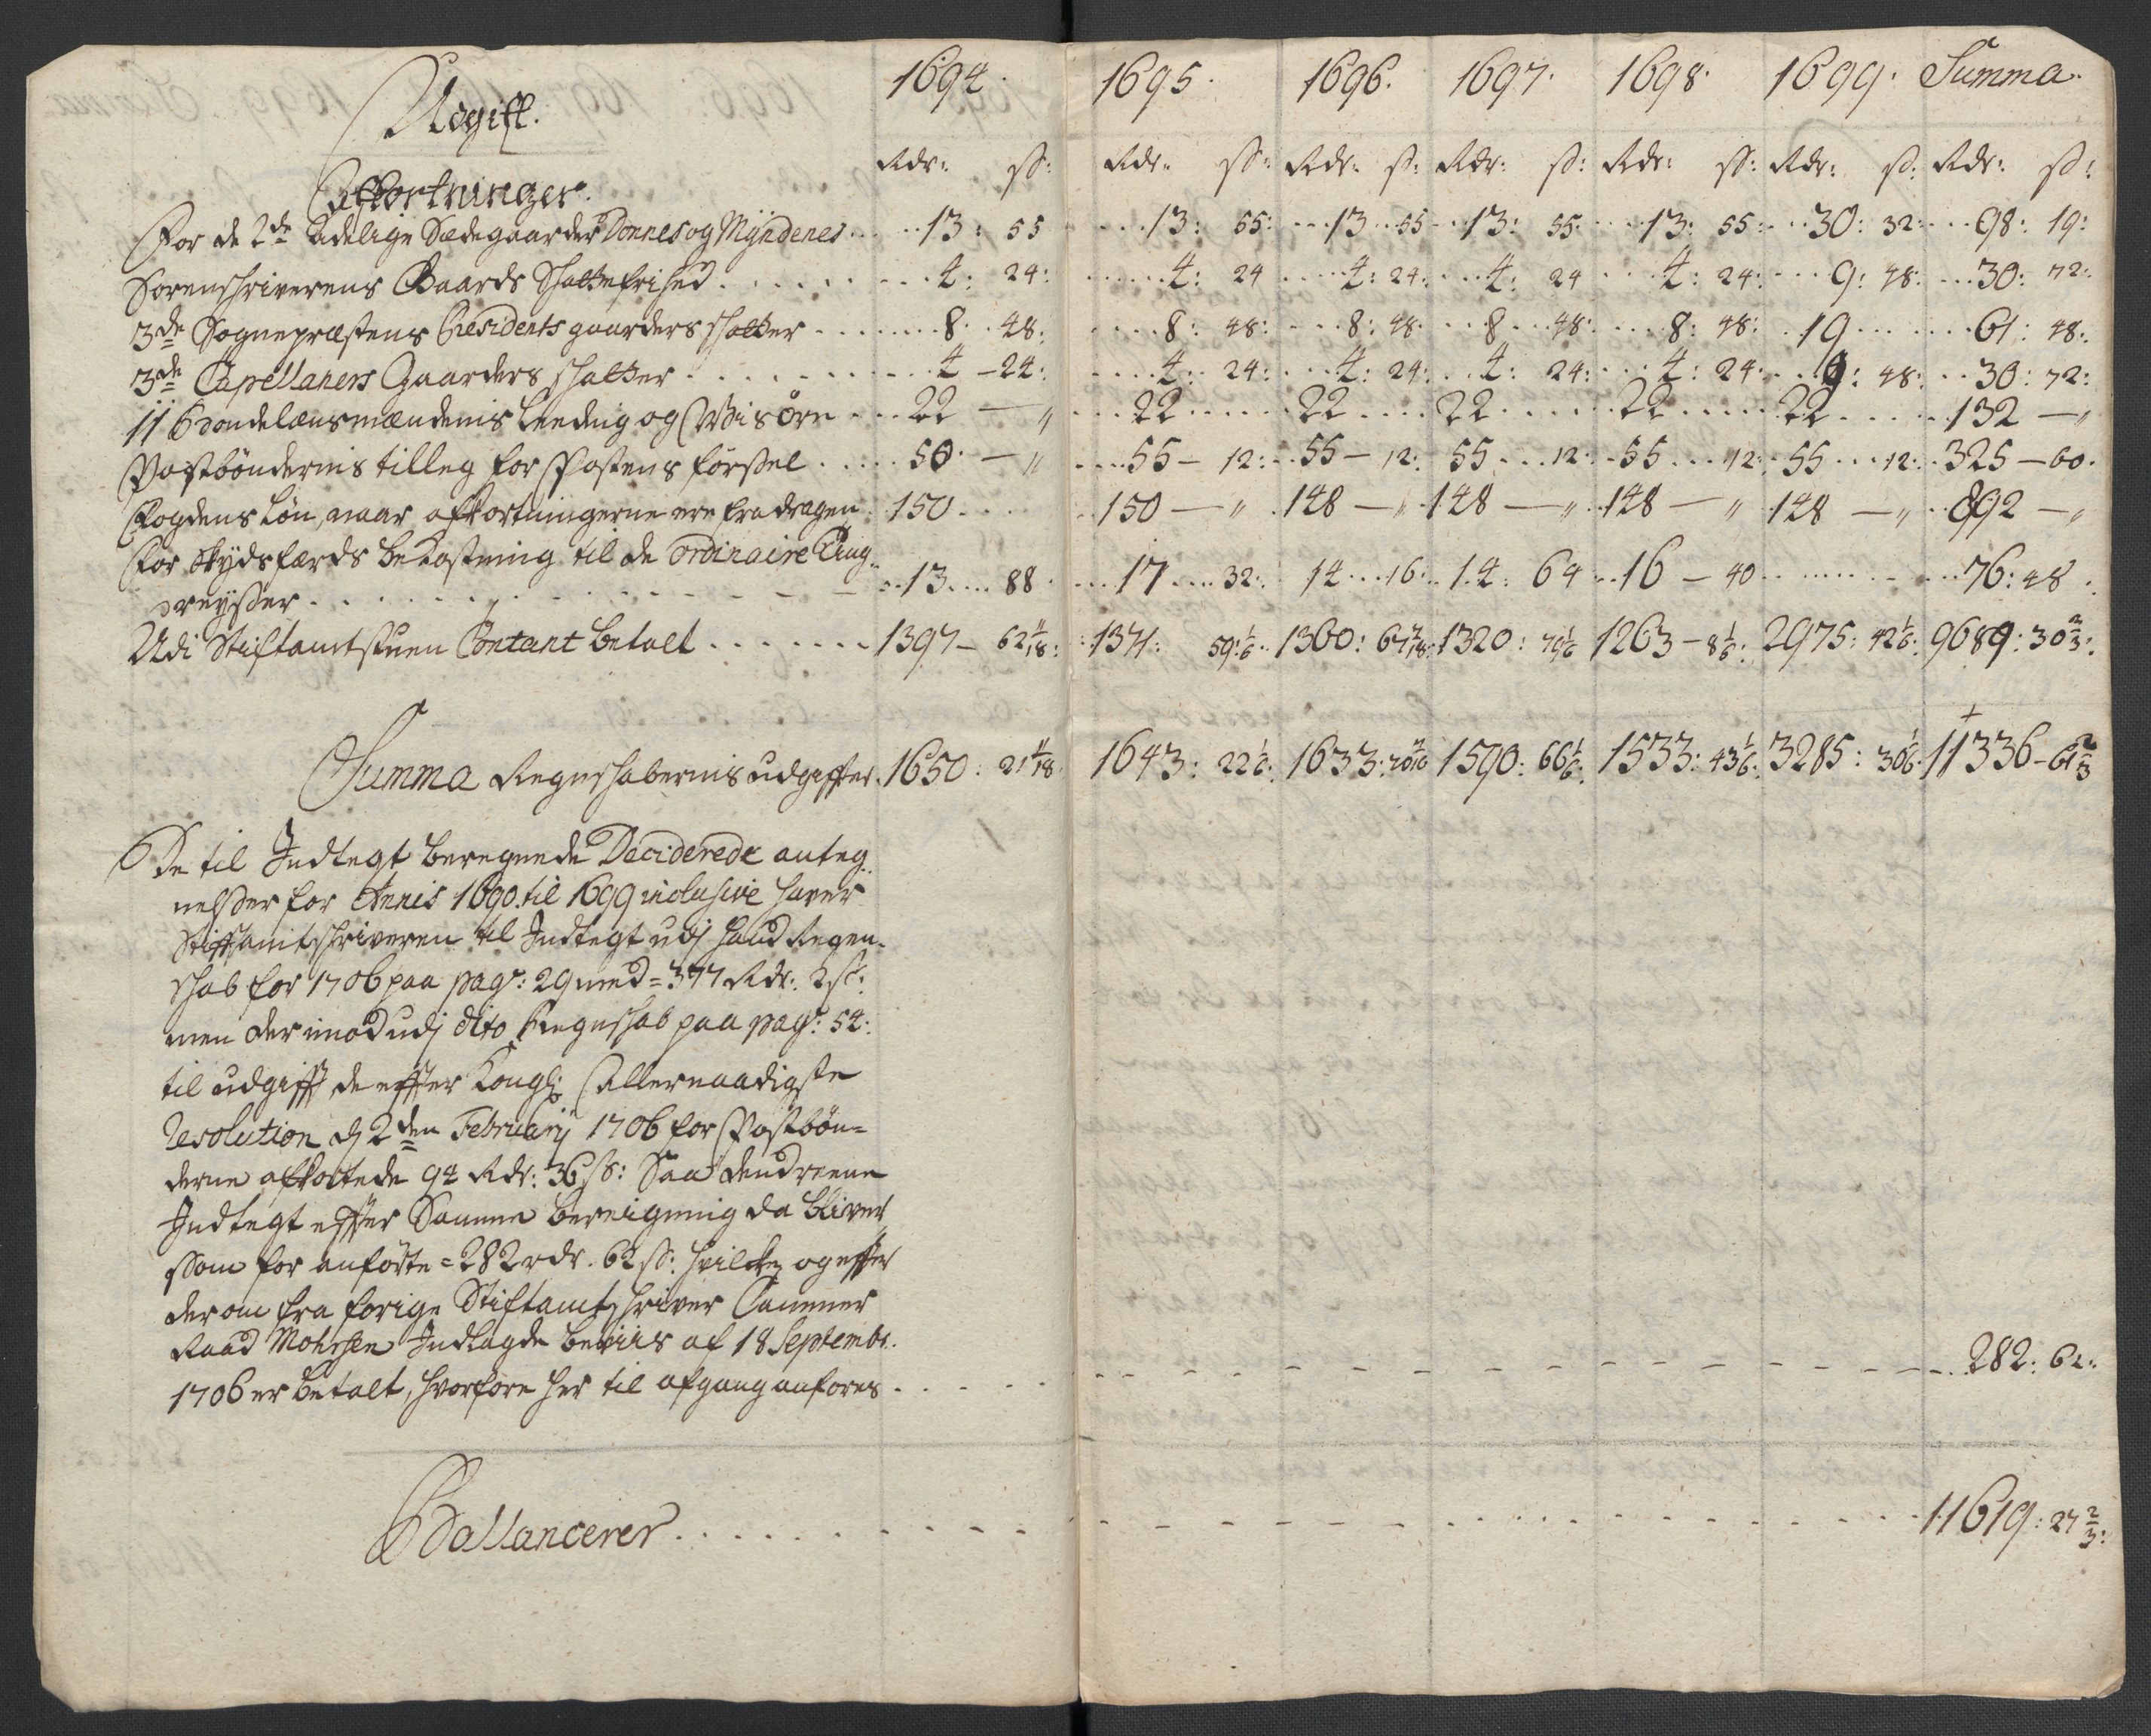 Udgift. 1694. 1695. 1696. 1697. 1698. 1699. Summa.
Rdr: ss: Rdr: ss: Rdr: s: Rdr: s: Rdr: ss: Rdr: s: Rdr: s:
Afkortninger.
For de 2de Adelige Sædegaarder Dønnes og Mÿndenes 13: 55 13: 55: 13 55 13: 55 13: 55: 30: 32: 98: 19:
Sorenschriverens Gaards Schattefrihed 4: 24: 4: 24 4: 24: 4: 24 4: 24: 9: 48: 30: 72:
3de Sognepræstens Residents gaarders schatter 8 48: 8: 48: 8: 48 8 48: 8: 48: 19 61: 48:
3de Capellaners Gaarders schatter 4 - 24: 4: 24: 4: 24: 4: 24: 4: 24: 9: 48: 30: 72:
11 Bondelænsmændenis Leeding og Wisøre 22 — „ 22 22 22 22 22 132 — „
Postbøndernis tilleg for Postens førsel 50 — „ 55 — 12: 55 — 12: 55 12: 55 12: 55 12: 325 — 60.
Fogdens Løn, naar afkortningerne ere fradragen 150 150 — „ 148 — „ 148 — „ 148 — „ 148 — „ 892 — „
For Skydsfærds bekostning til de ordinaire Ting-
reysser 13 88 17 32: 14 16: 14: 64 16 — 40 76: 48:
Udi Stiftamtstuen Contant betalt 1397 — 62 11/18: 1371: 59 1/6 1360: 67 7/18: 1320: 79 1/6 1263 — 8 1/6: 2975: 42 1/6: 9689: 30 2/3:
Summa Regnschabernis udgiffter 1650: 21 11/18 1643: 22 1/6: 1633: 20 1590: 66 1/6: 1533: 43 1/6: 3285: 30 1/6: 11336 — 61 2/3
De til Indtegt beregnede Deciderede anteg-
nelsser for Annis 1690 til 1699 inclusive hafver
Stiftamtschriveren til Indtegt udj hand Regen-
schab for 1706 paa pag: 29 med = 377 Rdr: 2 s:
men der imod udj dito Regnschab paa pag: 54:
til udgift de effter Kongl: Allernaadigste
Resolution d 2den Februarij 1706 for Postbøn-
derne afkortede 94 Rdr: 36 s: Saa dend reene
Indtegt effter Samme beregning da bliver
som for anførte = 282 rdr. 62 s: hvilcke og effter
derom fra forige Stiftamtschriver Cammer
Raad Mohrsen Indlagde beviis af 18 Septembr.
1706 er betalt, hvorfore her til afgang anføres 282: 62:
Ballancerer 11619: 27 2/3: